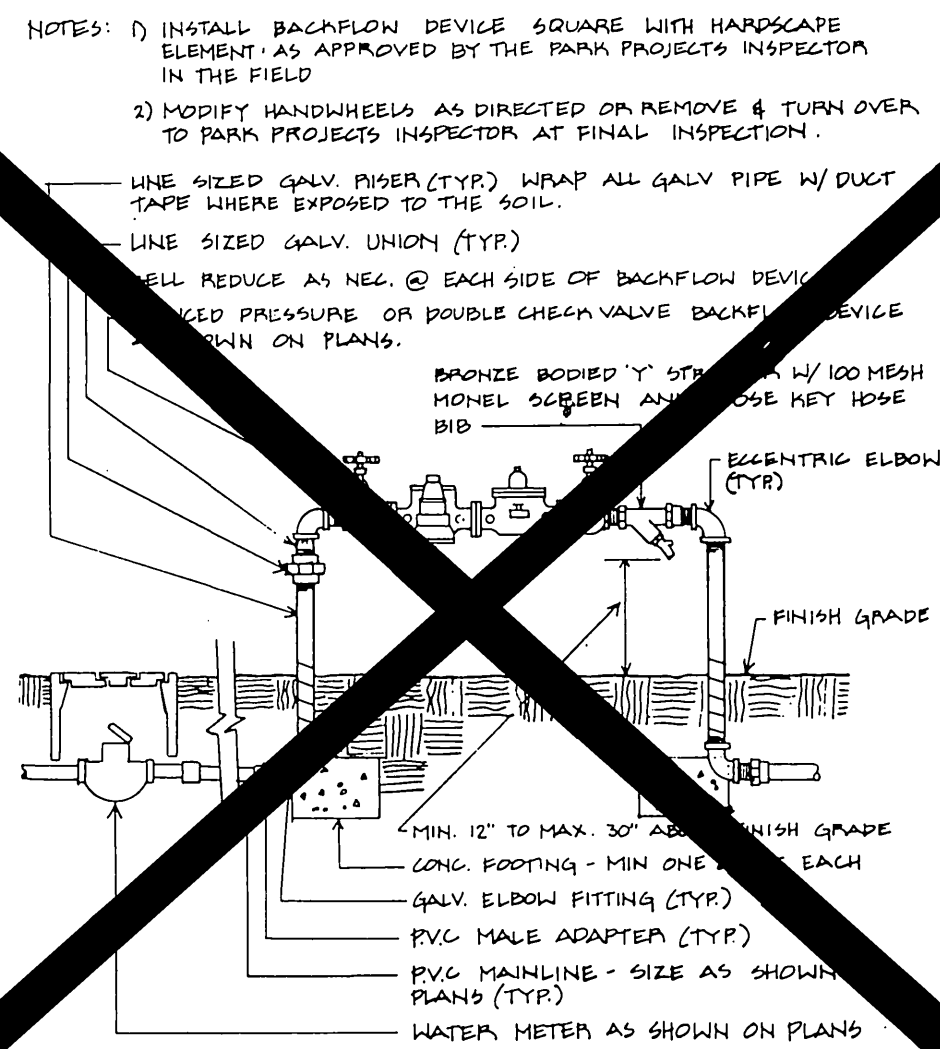 NOTES: 1) INSTALL BACKFLOW DEVICE SQUARE WITH HARDSCAPE
ELEMENT. AS APPROVED BY THE PARK PROJECTS INSPECTOR
IN THE FIELD
2) MODIFY HANDWHEELS AS DIRECTED OR REMOVE & TURN OVER
TO PARK PROJECTS INSPECTOR AT FINAL INSPECTION.
LINE SIZED GALV. RISER (TYP.) WRAP ALL GALV PIPE W/ DUCT
TAPE WHERE EXPOSED TO THE SOIL.
LINE SIZED GALV. UNION (TYP.)
REDUCE AS NEC. @ EACH SIDE OF BACKFLOW
PRESSURE OR DOUBLE CHECK VALVE DEVICE
ON PLANS.
BRONZE BODIED 'Y' W/ 100 MESH
MONEL SCREEN KEY HOSE
BIB
ECCENTRIC ELBOW
(TYP.)
FINISH GRADE
MIN. 12" TO MAX. 30" GRADE
CONC. FOOTING - MIN ONE EACH
GALV. ELBOW FITTING (TYP.)
P.V.C MALE ADAPTER (TYP.)
P.V.C MAINLINE - SIZE AS SHOWN
PLANS (TYP.)
WATER METER AS SHOWN ON PLANS